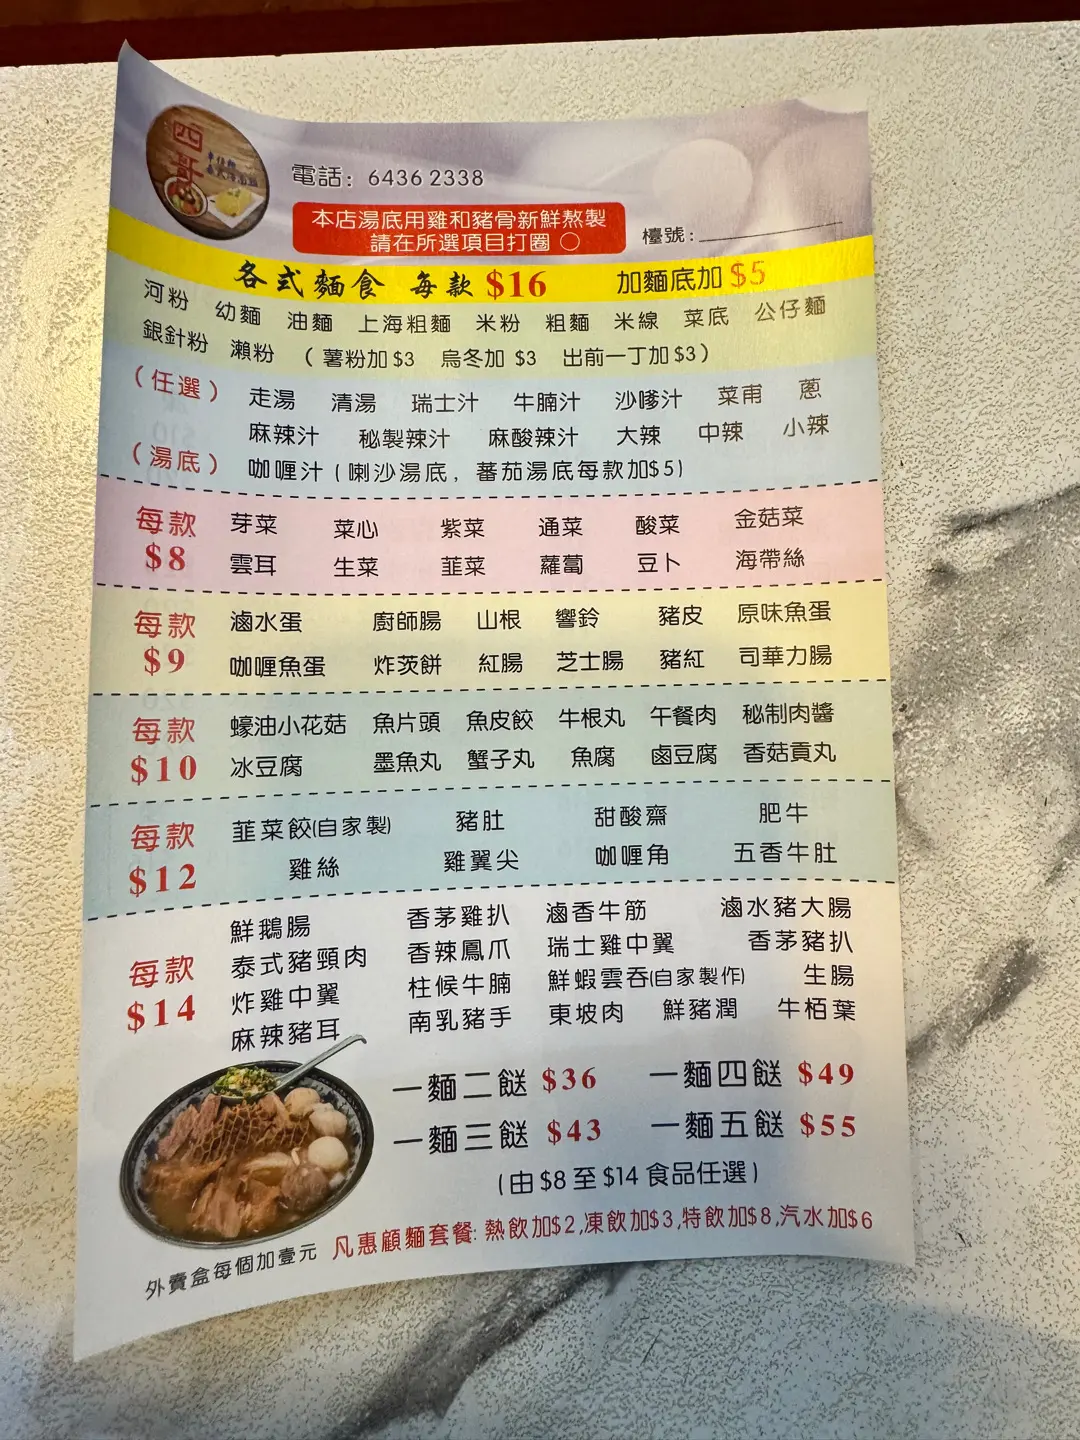 四哥
車仔麵
電話：6436 2338
本店湯底用雞和豬骨新鮮熬製
請在所選項目打圈 ○
檯號：
各式麵食 每款 $16 加麵底加 $5
河粉 幼麵 油麵 上海粗麵 米粉 粗麵 米線 菜底 公仔麵
銀針粉 瀨粉 （薯粉加 $3 烏冬加 $3 出前一丁加 $3）
（任選） 走湯 清湯 瑞士汁 牛腩汁 沙嗲汁 菜甫 蔥
麻辣汁 秘製辣汁 麻酸辣汁 大辣 中辣 小辣
（湯底） 咖喱汁（喇沙湯底，蕃茄湯底每款加$5）
每款 芽菜 菜心 紫菜 通菜 酸菜 金菇菜
$8 雲耳 生菜 韮菜 蘿蔔 豆卜 海帶絲
每款 滷水蛋 廚師腸 山根 響鈴 豬皮 原味魚蛋
$9 咖喱魚蛋 炸茨餅 紅腸 芝士腸 豬紅 司華力腸
每款 蠔油小花菇 魚片頭 魚皮餃 牛根丸 午餐肉 秘制肉醬
$10 冰豆腐 墨魚丸 蟹子丸 魚腐 鹵豆腐 香菇貢丸
每款 韮菜餃(自家製) 豬肚 甜酸齋 肥牛
$12 雞絲 雞翼尖 咖喱角 五香牛肚
鮮鵝腸 香茅雞扒 滷香牛筋 滷水豬大腸
每款 泰式豬頸肉 香辣鳳爪 瑞士雞中翼 香茅豬扒
$14 炸雞中翼 柱候牛腩 鮮蝦雲吞(自家製作) 生腸
麻辣豬耳 南乳豬手 東坡肉 鮮豬潤 牛栢葉
一麵二餸 $36 一麵四餸 $49
一麵三餸 $43 一麵五餸 $55
（由 $8 至 $14 食品任選）
外賣盒每個加壹元 凡惠顧麵套餐: 熱飲加$2,凍飲加$3,特飲加$8,汽水加$6